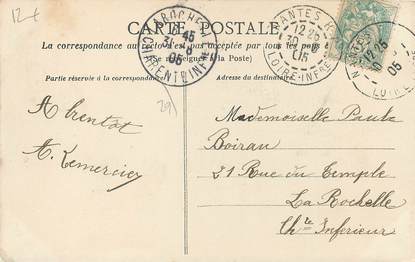 12 €
CARTE POSTALE
La correspondance au recto n'est pas acceptée par tous les pays
Se renseigner à la Poste)
Partie réservée à la correspondance
Adresse du destinataire
LA ROCHELLE
31 - 8
05
CHARENTE INFRE
NANTES
12 25
30 - 8
05
LOIRE-INFRE
29
A bientôt
A. Lemercier
Mademoiselle Paule
Boiran
21 Rue du Temple
La Rochelle
Chte Inférieur